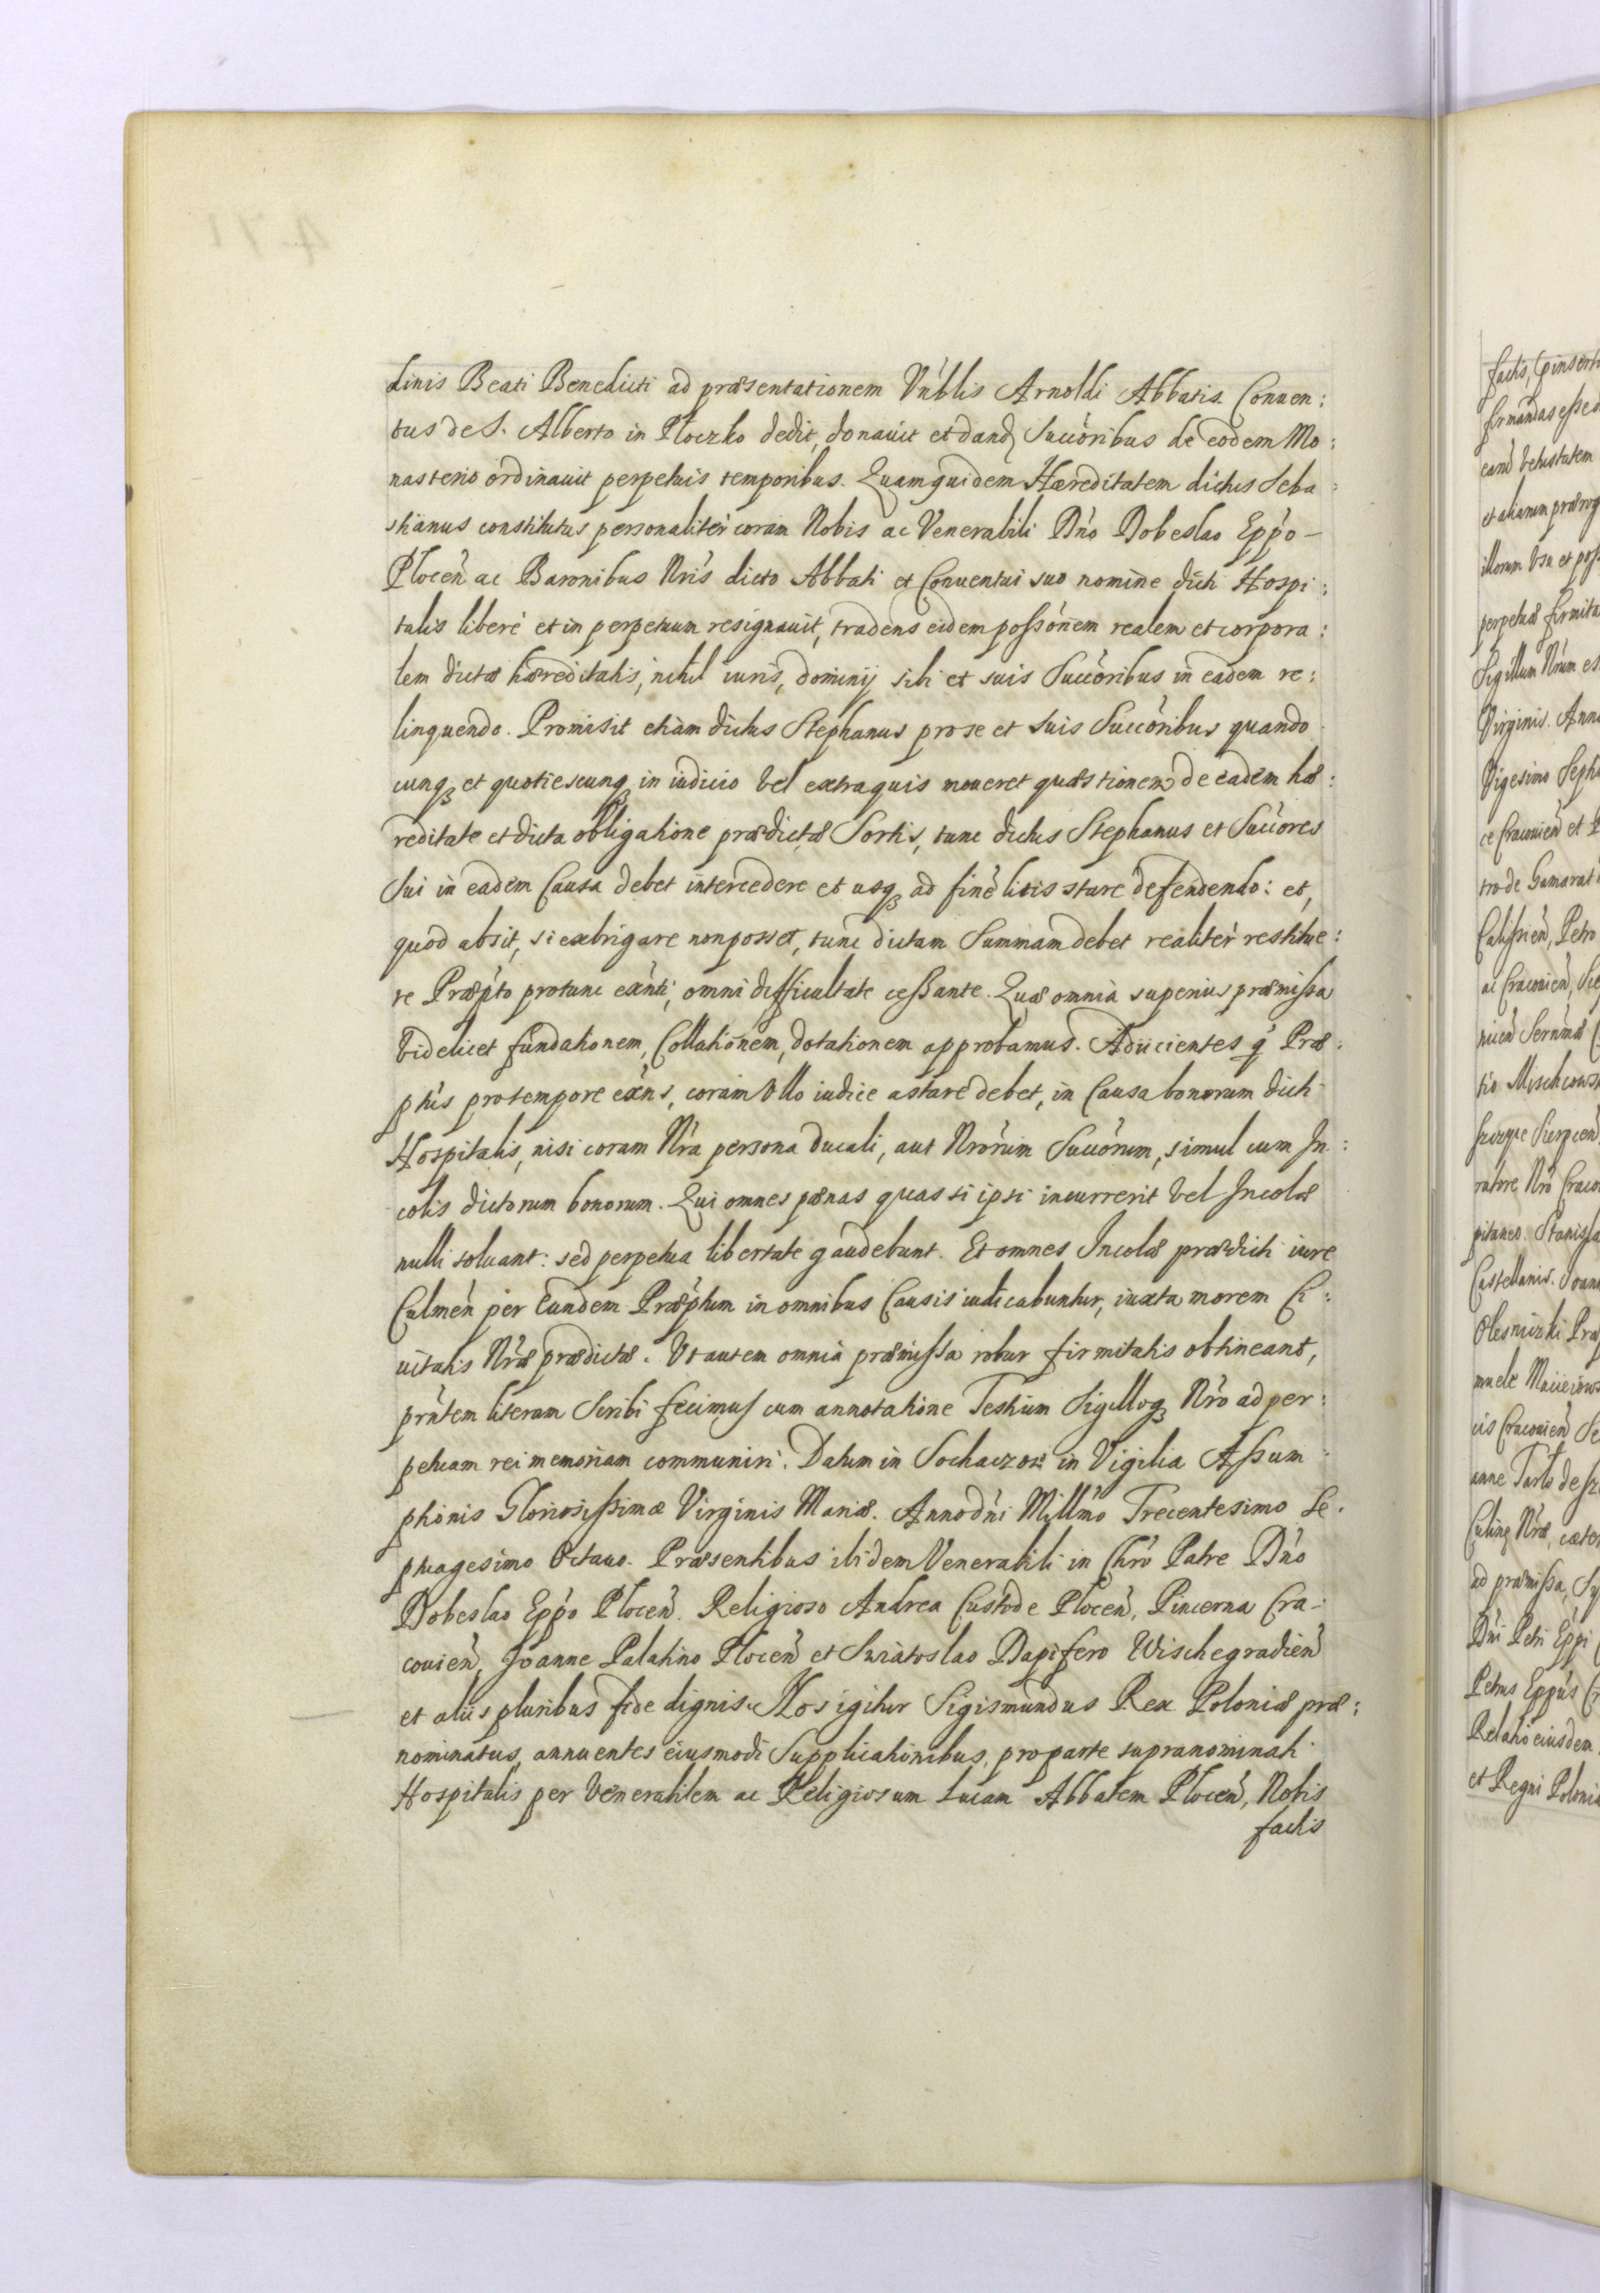 dinis Beati Benedicti ad præsentationem Vn̄blis Arnoldi Abbatis Conuen:
tus de S. Alberto in Ploczko dedit, donauit et dand Succōribus de eodem Mo:
nasterio ordinauit perpetuis temporibus. Quam quidem Hæreditatem dictus Seba:
stianus constitutus personaliter coram Nobis ac Venerabili Dn̄o Dobeslao Epp̄o –
Plocen̄ ac Baronibus Nr̄is dicto Abbati et Conuentui suo nomine dicti Hospi:
talis liberè et in perpetuum resignauit, tradens eidem possōnem realem et corpora:
lem dictæ hæreditatis, nihil iuris, dominij sibi et suis Succōribus in eadem re:
linquendo. Promisit etiam dictus Stephanus pro se et suis Succōribus quando
cunqꝫ et quotiescunqꝫ in iudicio vel extra quis moueret quæstionem de eadem hæ:
reditate et dicta obligatione prædictæ Sortis, tunc dictus Stephanus et Succōres
Sui in eadem Causa debet intercedere et usqꝫ ad finē litis stare defendendo: et,
quod absit, si exbrigare non posset, tunc dictam Summam debet realiter restitue:
re Præp̄to protunc exn̄ti, omni difficultate cessante. Quæ omnia superius præmissa
videlicet fundationem, Collationem, dotationem approbamus. Adiicientes q̄ Præ:
pt̄us pro tempore exn̄s, coram Ullo iudice astare debet, in Causa bonorum dicti
Hospitalis, nisi coram Nr̄a persona ducali, aut Nrōrum Succōrum, simul cum In:
colis dictorum bonorum. Qui omnes pænas quas si ipsi incurrerit vel Incolæ
nulli soluant: sed perpetua libertate gaudebunt. Et omnes Incolæ prædicti iure
Culmen̄ per Eundem Præp̄tum in omnibus Causis iudicabuntur, iuxta morem Ci:
uitatis Nr̄æ prædictæ. Vt autem omnia præmissa robur firmitatis obtineant,
prn̄tem literam Scribi fecimus cum annotatione Testium Sigilloqꝫ Nr̄o ad per:
petuam rei memoriam communiri. Datum in Sochaczow in Vigilia Assum:
ptionis Gloriosissimæ Virginis Mariæ. Anno dn̄i Millmō Trecentesimo Se:
ptuagesimo Octauo. Præsentibus ibidem Venerabili in Chrō Patre Dn̄o
Dobeslao Epp̄o Plocen̄. Religioso Andrea Custode Plocen̄, Pincerna Cra:
couien̄, Joanne Palatino Plocen̄ et Swiatoslao Dapifero Wischegradien̄
et aliis pluribus fide dignis. Nos igitur Sigismundus Rex Poloniæ præ:
nominatus, annuentes eiusmodi Supplicationibus, pro parte supranominati
Hospitalis per Venerabilem ac Religiosum Lucam Abbatem Plocen̄, Nobis
factis